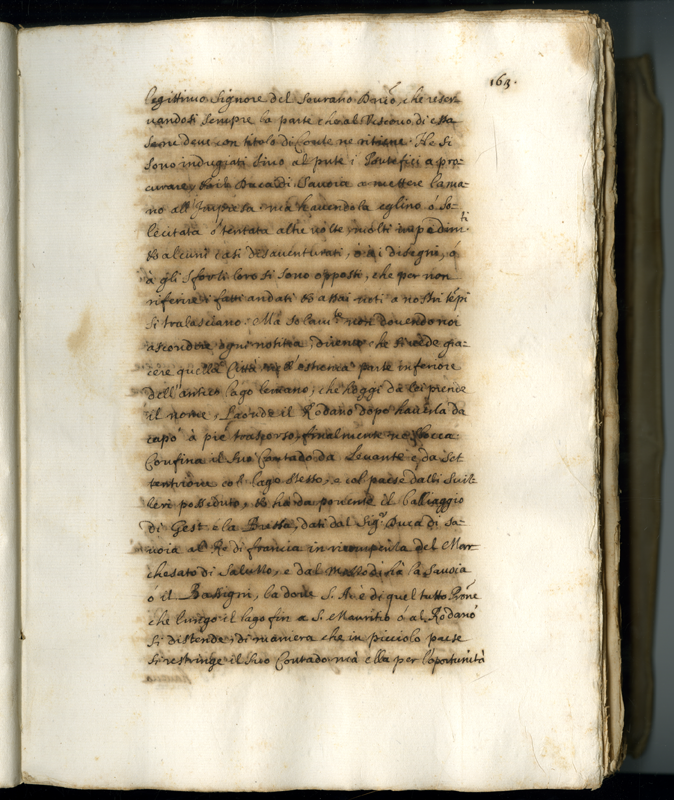 163.
legittimo Signore del Sourano Dario, che riser-
uandosi sempre la parte che al Vescouo di essa
se ne deue con titolo di Conte ne ritiene. Ne si
sono indugiati sino al pnte i Pontefici a pro-
curare, et i Ducadi Sauoia a mettere la ma-
no all'Impresa, mà hauendola eglino ò so-
lecitata ò tentata altre volte, molti impedimti
et alcuni casi disauenturati, ò a i disegni, ò
à gli sforzi loro si sono opposti, che per non
riferire i fatti andati et assai noti a nostri tēpi
si tralasciano. Mà solamte non douendo noi
ascondere ogni notitia, diremo che si vede gia-
cere quella Città nell'estrema parte inferiore
dell'antico lago lemano, che hoggi da lei prende
il nome, Laonde il Rodano dopo hauerla da
capo à piè trasporso, finalmente ne sbocca
Confina il suo Contado da Leuante e da Set-
tentrione col lago stesso, e col paese dalli Suiz-
zeri posseduto, et ha da ponente il balliaggio
di Gest e la Bressa, dati dal Sigr Duca di Sa-
uoia al Re di francia in ricompensa del Mar-
chesato di Saluzzo, e dal Mezzodi hà la Sauoia
ò il la doue S. A. è di quel tutto Prōne
che lungo il lago fin a S. Mauritio ò al Rodano
si distende, di maniera che in picciolo paese
si restringe il suo Contado, mà ella per l'oportunità